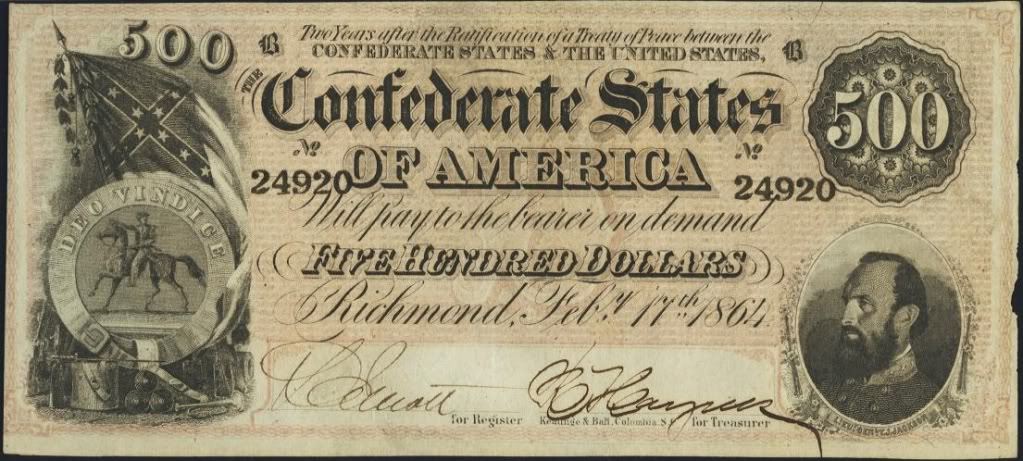 500
B
Two Years after the Ratification of a Treaty of Peace between the
B
CONFEDERATE STATES & THE UNITED STATES,
THE
Confederate States
500
No
No
OF AMERICA
24920
24920
Will pay to the bearer on demand
DEO VINDICE
FIVE HUNDRED DOLLARS
Richmond, Feby. 17th 1864
for Register
Keatinge & Ball, Columbia S.C.
for Treasurer
LIEUT. GEN. T. J. JACKSON